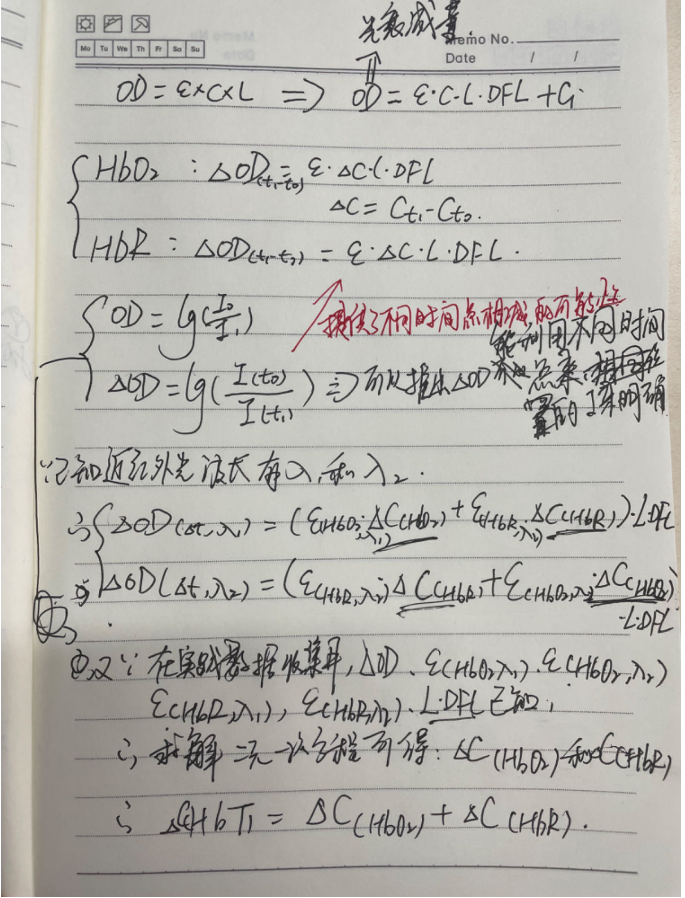 Mo Tu We Th Fr Sa Su
Memo No.
Date / /
光衰减量.
OD = ε×C×L ⇒ OD = ε·C·L·DFL + G.
HbO₂ : ΔOD(t₁-t₀) = ε·ΔC·l·DFL
ΔC = Ct₁ - Ct₀.
HbR : ΔOD(t₁-t₀) = ε·ΔC·L·DFL.
提供了不同时间点相减的可能性
OD = lg(I₀/I₁)
能利用不同时间
ΔOD = lg(I(t₀)/I(t₁)) ⇒ 可以推出ΔOD
点来
明确
∵已知近红外光波长有λ₁和λ₂.
∴ ΔOD(Δt,λ₁) = (ε(HbO₂,λ₁)·ΔC(HbO₂) + ε(HbR,λ₁)·ΔC(HbR))·L·DFL
ΔOD(Δt,λ₂) = (ε(HbR,λ₂)·ΔC(HbR) + ε(HbO₂,λ₂)·ΔC(HbO₂))
·L·DFL
又∵在实践数据收集中, ΔOD、ε(HbO₂,λ₁)、ε(HbO₂,λ₂)
ε(HbR,λ₁), ε(HbR,λ₂)、L·DFL已知,
∴求解二元一次方程可得: ΔC(HbO₂)和ΔC(HbR)
∴ ΔC[HbT] = ΔC(HbO₂) + ΔC(HbR).